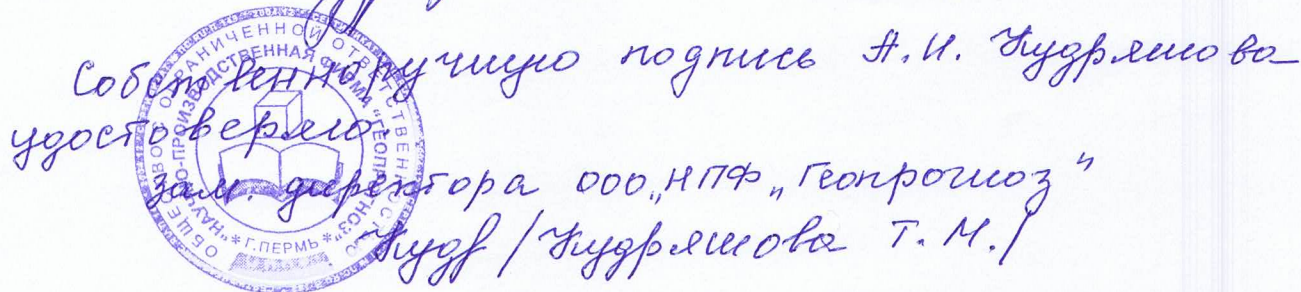 Собственноручную подпись А.И. Кудряшова
удостоверяю.
Зам. директора ООО „НПФ „Геопрогноз"
Кудр /Кудряшова Т.М./
ОБЩЕСТВО С ОГРАНИЧЕННОЙ ОТВЕТСТВЕННОСТЬЮ
"НАУЧНО-ПРОИЗВОДСТВЕННАЯ ФИРМА "ГЕОПРОГНОЗ"
* Г.ПЕРМЬ *